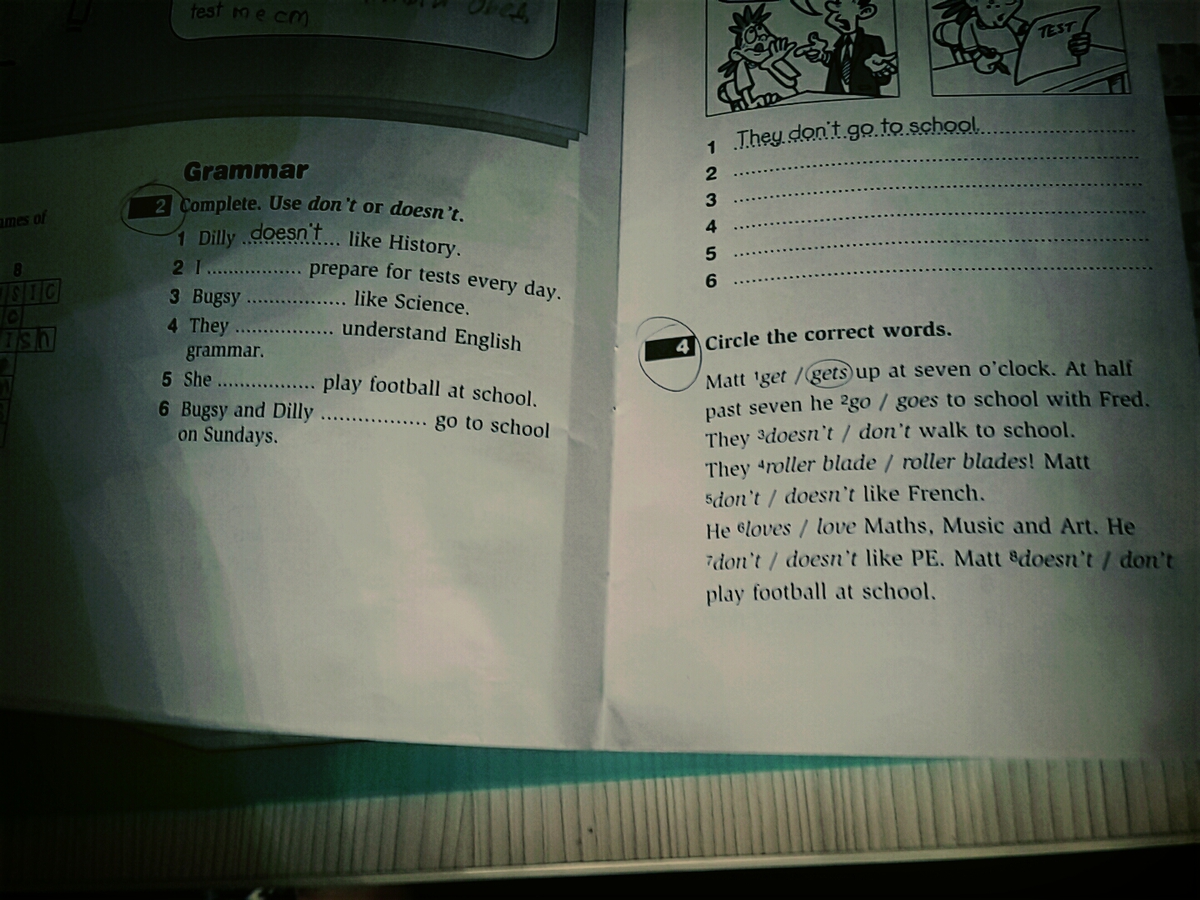 test me cm
Grammar
2 Complete. Use don't or doesn't.
1 Dilly doesn't like History.
2 I ................ prepare for tests every day.
3 Bugsy ................ like Science.
4 They ................ understand English
grammar.
5 She ................ play football at school.
6 Bugsy and Dilly ................ go to school
on Sundays.
ames of
8
USIC
O
ISh
TEST
1 They don't go to school.
2
3
4
5
6
4 Circle the correct words.
Matt ¹get / gets up at seven o'clock. At half
past seven he ²go / goes to school with Fred.
They ³doesn't / don't walk to school.
They ⁴roller blade / roller blades! Matt
⁵don't / doesn't like French.
He ⁶loves / love Maths, Music and Art. He
⁷don't / doesn't like PE. Matt ⁸doesn't / don't
play football at school.